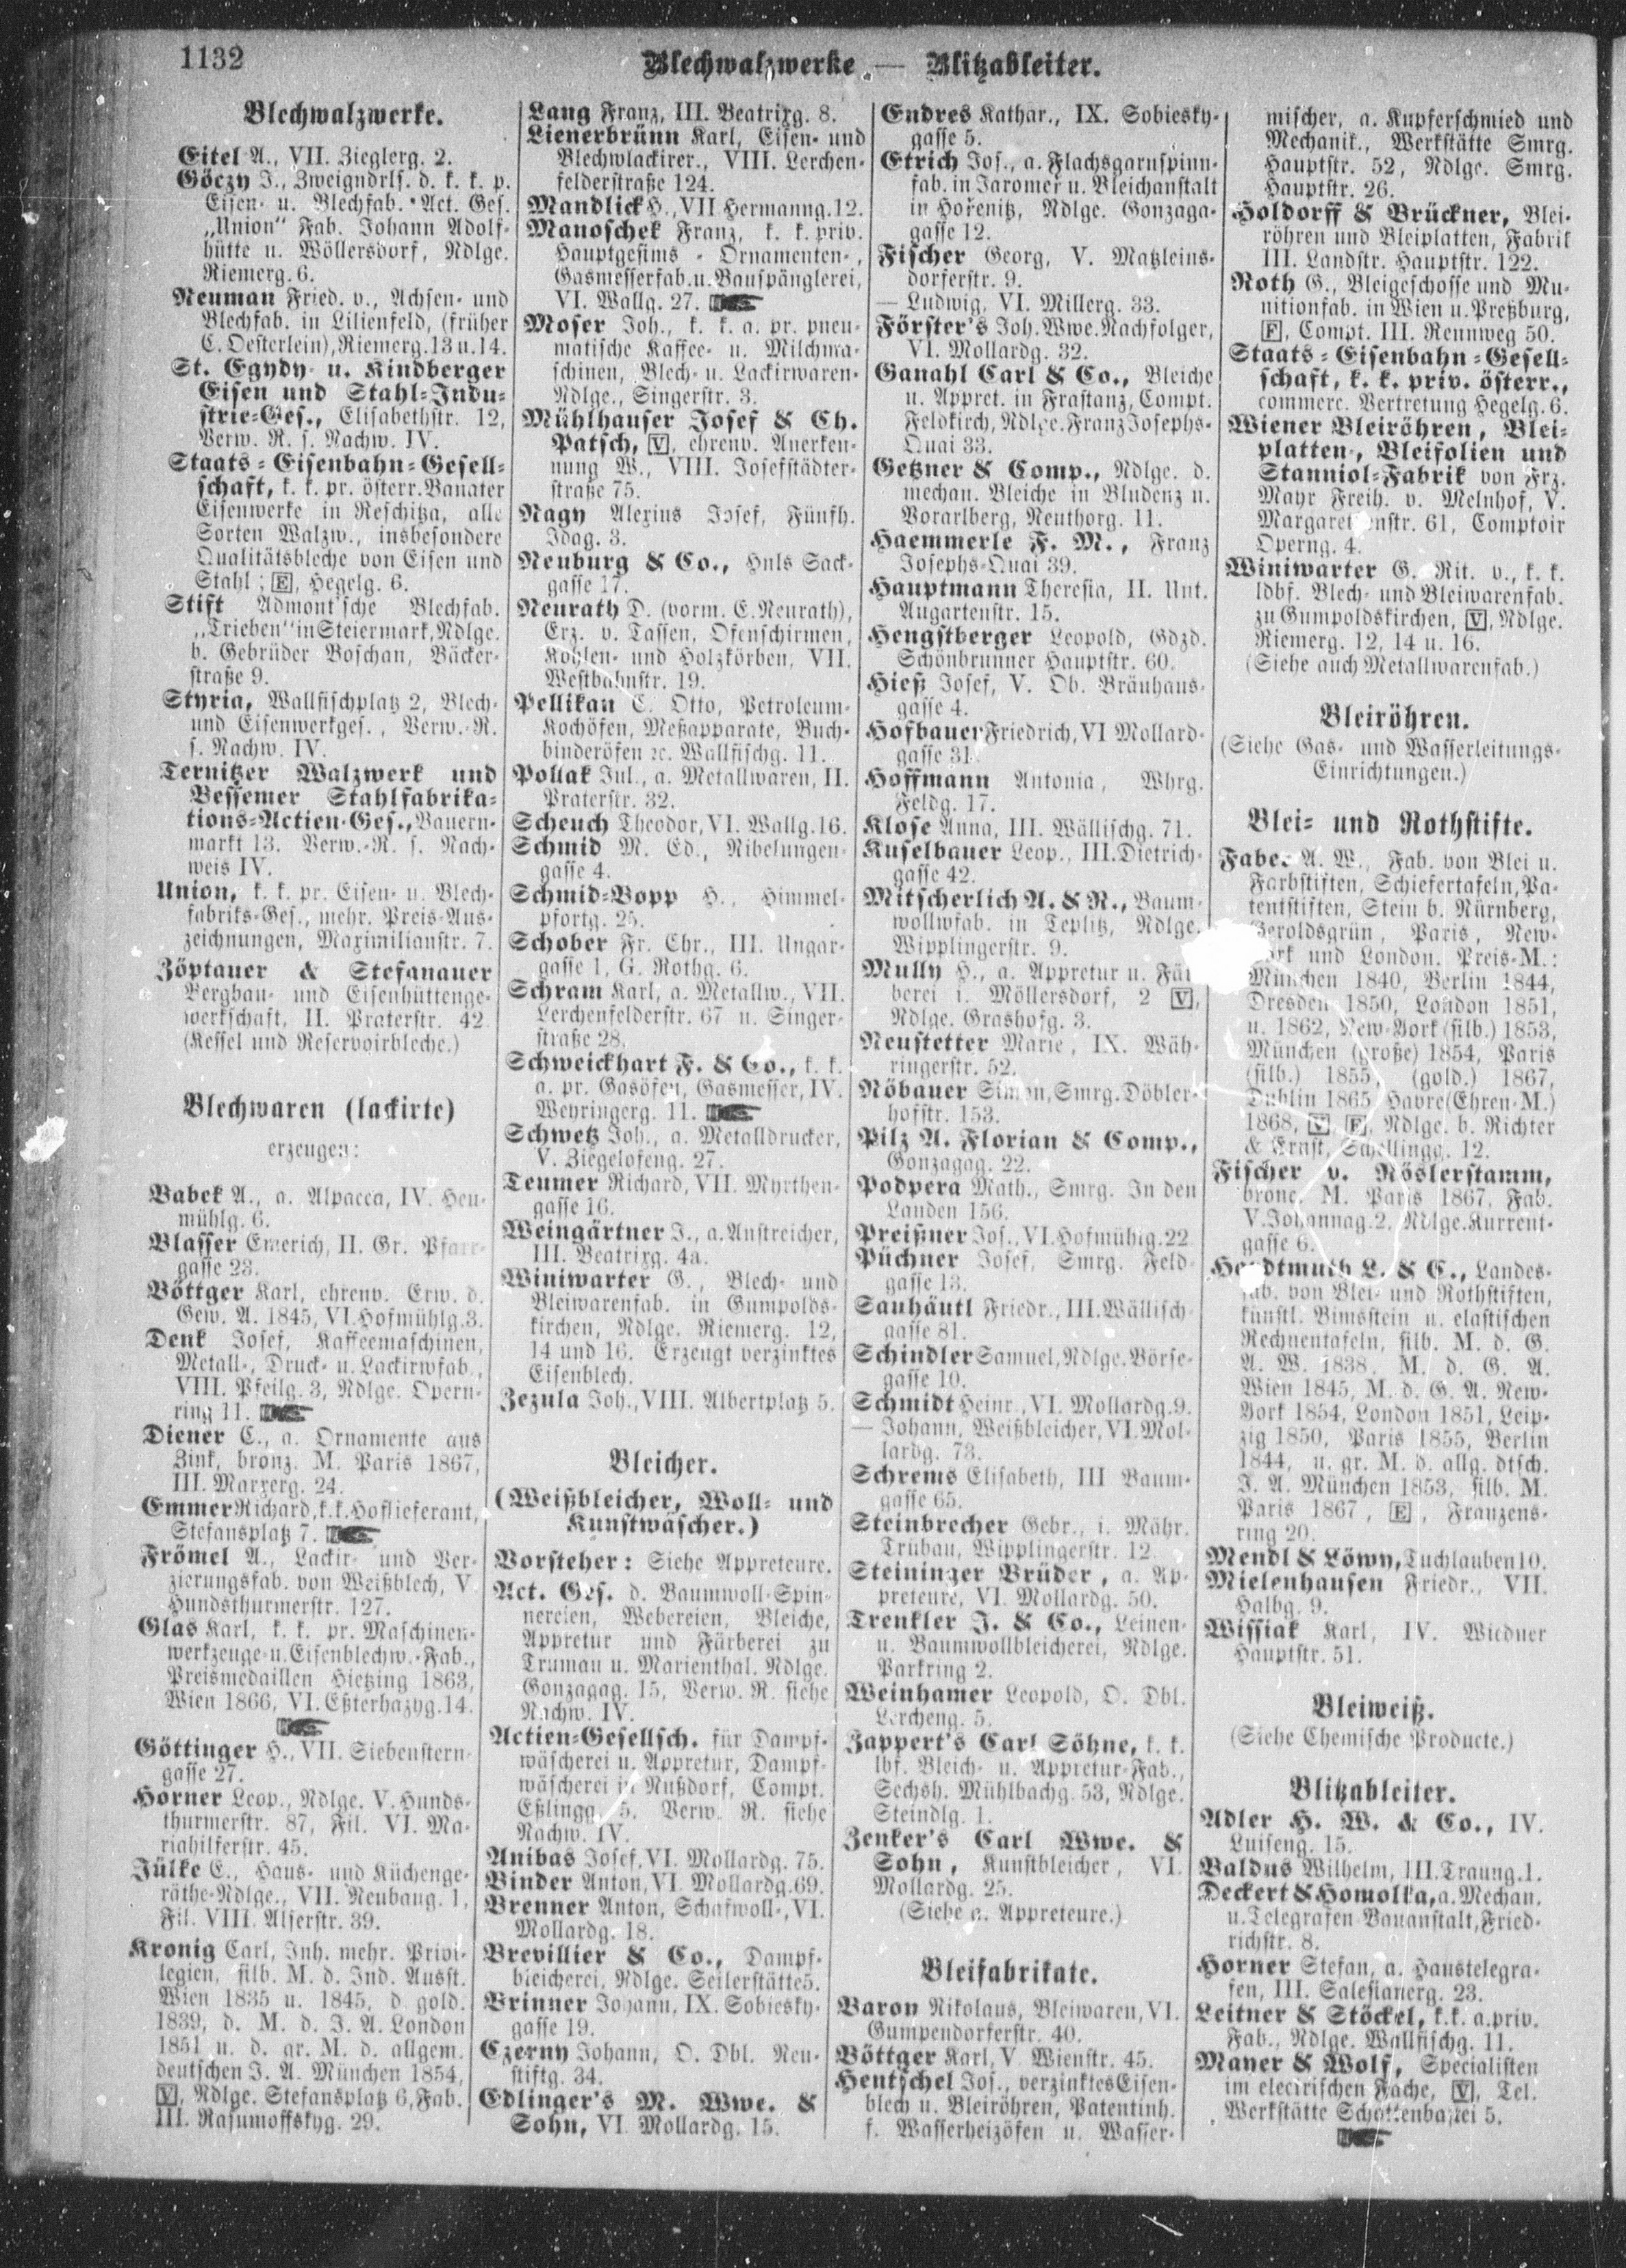 1132
Blechwalzwerke — Blitzableiter.
Blechwalzwerke.
Eitel A., VII. Zieglerg. 2.
Göczy J., Zweigndrls. d. k. k. p.
Eisen- u. Blechfab.-Act. Ges.
„Union“ Fab. Johann Adolf-
hütte u. Wöllersdorf, Ndlge.
Riemerg. 6.
Neuman Fried. v., Achsen- und
Blechfab. in Lilienfeld, (früher
C. Oesterlein), Riemerg. 13 u. 14.
St. Egydy- u. Kindberger
Eisen und Stahl-Indu-
strie-Ges., Elisabethstr. 12,
Verw. R. s. Nachw. IV.
Staats-Eisenbahn-Gesell-
schaft, k. k. pr. österr. Banater
Eisenwerke in Reschitza, alle
Sorten Walzw., insbesondere
Qualitätsbleche von Eisen und
Stahl; E, Hegelg. 6.
Stift Admont'sche Blechfab.
„Trieben“ in Steiermark, Ndlge.
b. Gebrüder Boschan, Bäcker-
straße 9.
Styria, Wallfischplatz 2, Blech-
und Eisenwerkges., Verw.-R.
s. Nachw. IV.
Ternitzer Walzwerk und
Bessemer Stahlfabrika-
tions-Actien-Ges., Bauern-
markt 13. Verw.-R. s. Nach-
weis IV.
Union, k. k. pr. Eisen- u. Blech-
fabriks-Ges., mehr. Preis-Aus-
zeichnungen, Maximilianstr. 7.
Zöptauer & Stefanauer
Bergbau- und Eisenhüttenge-
werkschaft, II. Praterstr. 42.
(Kessel und Reservoirbleche.)
Blechwaren (lackirte)
erzeugen:
Babek A., a. Alpacca, IV. Heu-
mühlg. 6.
Blasser Emerich, II. Gr. Pfarr-
gasse 23.
Böttger Karl, ehrenv. Erw. d.
Gew. A. 1845, VI. Hofmühlg. 3.
Denk Josef, Kaffeemaschinen,
Metall-, Druck- u. Lackirwfab.,
VIII. Pfeilg. 3, Ndlge. Opern-
ring 11.
Diener C., a. Ornamente aus
Zink, bronz. M. Paris 1867,
III. Marxerg. 24.
Emmer Richard, k. k. Hoflieferant,
Stefansplatz 7.
Frömel A., Lackir- und Ver-
zierungsfab. von Weißblech, V.
Hundsthurmerstr. 127.
Glas Karl, k. k. pr. Maschinen-
werkzeuge- u. Eisenblechw.-Fab.,
Preismedaillen Hietzing 1863,
Wien 1866, VI. Eßterhazyg. 14.
Göttinger H., VII. Siebenstern-
gasse 27.
Horner Leop., Ndlge. V. Hunds-
thurmerstr. 87, Fil. VI. Ma-
riahilferstr. 45.
Jülke C., Haus- und Küchenge-
räthe-Ndlge., VII. Neubaug. 1,
Fil. VIII. Alserstr. 39.
Kronig Carl, Inh. mehr. Privi-
legien, silb. M. d. Ind. Ausst.
Wien 1835 u. 1845, d. gold.
1839, d. M. d. J. A. London
1851 u. d. gr. M. d. allgem.
deutschen J. A. München 1854,
V, Ndlge. Stefansplatz 6, Fab.
III. Rasumoffskyg. 29.
Lang Franz, III. Beatrixg. 8.
Lienerbrünn Karl, Eisen- und
Blechwlackirer., VIII. Lerchen-
felderstraße 124.
Mandlick H., VII Hermanng. 12.
Manoschek Franz, k. k. priv.
Hauptgesims-Ornamenten-,
Gasmesserfab. u. Bauspänglerei,
VI. Wallg. 27.
Moser Joh., k. k. a. pr. pneu-
matische Kaffee- u. Milchma-
schinen, Blech- u. Lackirwaren-
Ndlge., Singerstr. 3.
Mühlhauser Josef & Ch.
Patsch, V, ehrenv. Anerken-
nung W., VIII. Josefstädter-
straße 75.
Nagy Alexius Josef, Fünfh.
Idag. 3.
Neuburg & Co., Huls Sack-
gasse 17.
Neurath D. (vorm. C. Neurath),
Erz. v. Tassen, Ofenschirmen,
Kohlen- und Holzkörben, VII.
Westbahnstr. 19.
Pellikan C. Otto, Petroleum-
Kochöfen, Meßapparate, Buch-
binderöfen ec. Wallfischg. 11.
Pollak Jul., a. Metallwaren, II.
Praterstr. 32.
Scheuch Theodor, VI. Wallg. 16.
Schmid M. Ed., Nibelungen-
gasse 4.
Schmid-Bopp H., Himmel-
pfortg. 25.
Schober Fr. Chr., III. Ungar-
gasse 1, G. Rothg. 6.
Schram Karl, a. Metallw., VII.
Lerchenfelderstr. 67 u. Singer-
straße 28.
Schweickhart F. & Co., k. k.
a. pr. Gasöfen, Gasmesser, IV.
Weyringerg. 11.
Schwetz Joh., a. Metalldrucker,
V. Ziegelofeng. 27.
Teumer Richard, VII. Myrthen-
gasse 16.
Weingärtner J., a. Anstreicher,
III. Beatrixg. 4a.
Winiwarter G., Blech- und
Bleiwarenfab. in Gumpolds-
kirchen, Ndlge. Riemerg. 12,
14 und 16. Erzeugt verzinktes
Eisenblech.
Zezula Joh., VIII. Albertplatz 5.
Bleicher.
(Weißbleicher, Woll- und
Kunstwäscher.)
Vorsteher: Siehe Appreteure.
Act. Ges. d. Baumwoll-Spin-
nereien, Webereien, Bleiche,
Appretur und Färberei zu
Trumau u. Marienthal. Ndlge.
Gonzagag. 15, Verw. R. siehe
Nachw. IV.
Actien-Gesellsch. für Dampf-
wäscherei u. Appretur, Dampf-
wäscherei in Nußdorf, Compt.
Eßlingg. 5. Verw. R. siehe
Nachw. IV.
Anibas Josef, VI. Mollardg. 75.
Binder Anton, VI. Mollardg. 69.
Brenner Anton, Schafwoll-, VI.
Mollardg. 18.
Brevillier & Co., Dampf-
bleicherei, Ndlge. Seilerstätte 5.
Brinner Johann, IX. Sobiesky-
gasse 19.
Czerny Johann, O. Dbl. Neu-
stiftg. 34.
Edlinger's M. Wwe. &
Sohn, VI. Mollardg. 15.
Endres Kathar., IX. Sobiesky-
gasse 5.
Etrich Jos., a. Flachsgarnspinn-
fab. in Jaromeř u. Bleichanstalt
in Hořenitz, Ndlge. Gonzaga-
gasse 12.
Fischer Georg, V. Matzleins-
dorferstr. 9.
— Ludwig, VI. Millerg. 33.
Förster's Joh. Wwe. Nachfolger,
VI. Mollardg. 32.
Ganahl Carl & Co., Bleiche
u. Appret. in Frastanz, Compt.
Feldkirch, Ndlge. Franz Josephs-
Quai 33.
Getzner & Comp., Ndlge. d.
mechan. Bleiche in Bludenz u.
Vorarlberg, Neuthorg. 11.
Haemmerle F. M., Franz
Josephs-Quai 39.
Hauptmann Theresia, II. Unt.
Augartenstr. 15.
Hengstberger Leopold, Gdzd.
Schönbrunner Hauptstr. 60.
Hieß Josef, V. Ob. Bräuhaus-
gasse 4.
Hofbauer Friedrich, VI Mollard-
gasse 31.
Hoffmann Antonia, Whrg.
Feldg. 17.
Klose Anna, III. Wällischg. 71.
Kuselbauer Leop., III. Dietrich-
gasse 42.
Mitscherlich A. & R., Baum-
wollwfab. in Teplitz, Ndlge.
Wipplingerstr. 9.
Mully H., a. Appretur u. Fär-
berei i. Möllersdorf, 2 V,
Ndlge. Grashofg. 3.
Neustetter Marie, IX. Wäh-
ringerstr. 52.
Nöbauer Simon, Smrg. Döbler-
hofstr. 153.
Pilz A. Florian & Comp.,
Gonzagag. 22.
Podpera Math., Smrg. In den
Landen 156.
Preißner Jos., VI. Hofmühlg. 22
Püchner Josef, Smrg. Feld-
gasse 13.
Sauhäutl Friedr., III. Wällisch-
gasse 81.
Schindler Samuel, Ndlge. Börse-
gasse 10.
Schmidt Heinr., VI. Mollardg. 9.
— Johann, Weißbleicher, VI. Mol-
lardg. 73.
Schrems Elisabeth, III Baum-
gasse 65.
Steinbrecher Gebr., i. Mähr.
Trübau, Wipplingerstr. 12.
Steininger Brüder, a. Ap-
preteure, VI. Mollardg. 50.
Trenkler J. & Co., Leinen-
u. Baumwollbleicherei, Ndlge.
Parkring 2.
Weinhamer Leopold, O. Dbl.
Lercheng. 5.
Zappert's Carl Söhne, k. k.
lbf. Bleich- u. Appretur-Fab.,
Sechsh. Mühlbachg. 53, Ndlge.
Steindlg. 1.
Zenker's Carl Wwe. &
Sohn, Kunstbleicher, VI.
Mollardg. 25.
(Siehe a. Appreteure.)
Bleifabrikate.
Baron Nikolaus, Bleiwaren, VI.
Gumpendorferstr. 40.
Böttger Karl, V. Wienstr. 45.
Hentschel Jos., verzinktes Eisen-
blech u. Bleiröhren, Patentinh.
f. Wasserheizöfen u. Wasser-
mischer, a. Kupferschmied und
Mechanik., Werkstätte Smrg.
Hauptstr. 52, Ndlge. Smrg.
Hauptstr. 26.
Holdorff & Brückner, Blei-
röhren und Bleiplatten, Fabrik
III. Landstr. Hauptstr. 122.
Roth G., Bleigeschosse und Mu-
nitionfab. in Wien u. Preßburg,
F, Compt. III. Rennweg 50.
Staats-Eisenbahn-Gesell-
schaft, k. k. priv. österr.,
commerc. Vertretung Hegelg. 6.
Wiener Bleiröhren, Blei-
platten-, Bleifolien und
Stanniol-Fabrik von Frz.
Mayr Freih. v. Melnhof, V.
Margaretenstr. 61, Comptoir
Operng. 4.
Winiwarter G. Rit. v., k. k.
ldbf. Blech- und Bleiwarenfab.
zu Gumpoldskirchen, V, Ndlge.
Riemerg. 12, 14 u. 16.
(Siehe auch Metallwarenfab.)
Bleiröhren.
(Siehe Gas- und Wasserleitungs-
Einrichtungen.)
Blei- und Rothstifte.
Faber A. W., Fab. von Blei u.
Farbstiften, Schiefertafeln, Pa-
tentstiften, Stein b. Nürnberg,
Geroldsgrün, Paris, New-
York und London. Preis-M.:
München 1840, Berlin 1844,
Dresden 1850, London 1851,
u. 1862, New-York (silb.) 1853,
München (große) 1854, Paris
(silb.) 1855, (gold.) 1867,
Dublin 1865, Havre (Ehren-M.)
1868, V, F, Ndlge. b. Richter
& Ernst, Schellingg. 12.
Fischer v. Röslerstamm,
bronc. M. Paris 1867, Fab.
V. Johannag. 2, Ndlge. Kurrent-
gasse 6.
Hardtmuth L. & C., Landes-
fab. von Blei- und Rothstiften,
künstl. Bimsstein u. elastischen
Rechnentafeln, silb. M. d. G.
A. W. 1838, M. d. G. A.
Wien 1845, M. d. G. A. New-
York 1854, London 1851, Leip-
zig 1850, Paris 1855, Berlin
1844, u. gr. M. d. allg. dtsch.
J. A. München 1853, silb. M.
Paris 1867, E, Franzens-
ring 20.
Mendl & Löwy, Tuchlauben 10.
Mielenhausen Friedr., VII.
Halbg. 9.
Wissiak Karl, IV. Wiedner
Hauptstr. 51.
Bleiweiß.
(Siehe Chemische Producte.)
Blitzableiter.
Adler H. W. & Co., IV.
Luiseng. 15.
Baldus Wilhelm, III. Traung. 1.
Deckert & Homolka, a. Mechan.
u. Telegrafen-Bauanstalt, Fried-
richstr. 8.
Horner Stefan, a. Haustelegra-
fen, III. Salesianerg. 23.
Leitner & Stöckel, k. k. a. priv.
Fab., Ndlge. Wallfischg. 11.
Mayer & Wolf, Specialisten
im electrischen Fache, V, Tel.
Werkstätte Schottenbastei 5.